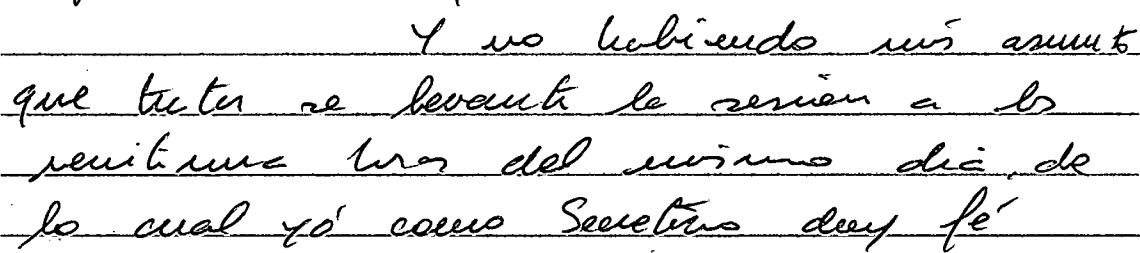 Y no habiendo más asunto
que tratar se levanta la sesión a las
veintiuna horas del mismo día, de
lo cual yó como Secretario doy fé